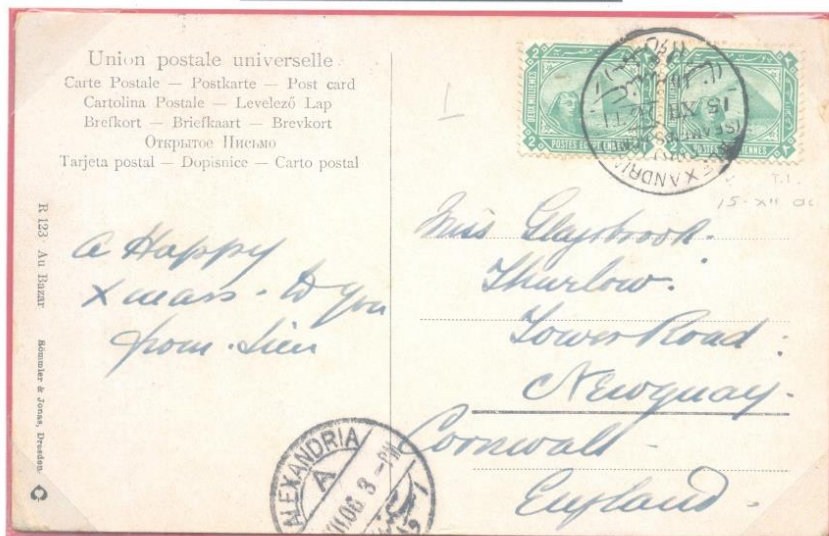 Union postale universelle
Carte Postale — Postkarte — Post card
Cartolina Postale — Levelező Lap
Brefkort — Briefkaart — Brevkort
Открытое Письмо
Tarjeta postal — Dopisnice — Carto postal
R 123 Au Bazar Römmler & Jonas, Dresden.
a Happy
Xmass - to you
from
2 DEUX MILLIEMES 2
POSTES
15 XII
ALEXANDRIA
15-XII 06
Miss
Thurlow.
Tower Road.
Newquay.
Cornwall
England.
ALEXANDRIA
A
XII.06 3 - PM